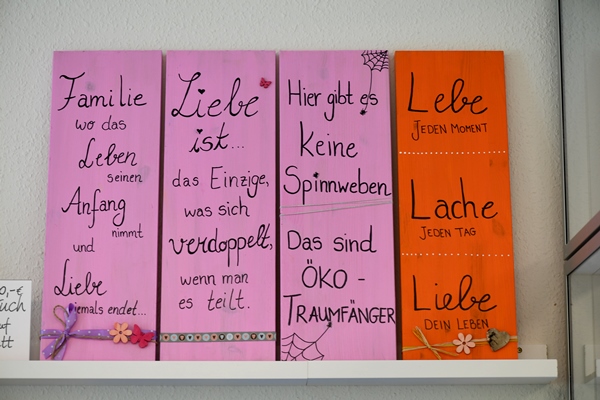 Familie
wo das
Leben
seinen
Anfang
nimmt
und
Liebe
niemals endet...
Liebe
ist...
das Einzige,
was sich
verdoppelt,
wenn man
es teilt.
Hier gibt es
Keine
Spinnweben
Das sind
ÖKO-
TRAUMFÄNGER
Lebe
JEDEN MOMENT
Lache
JEDEN TAG
Liebe
DEIN LEBEN